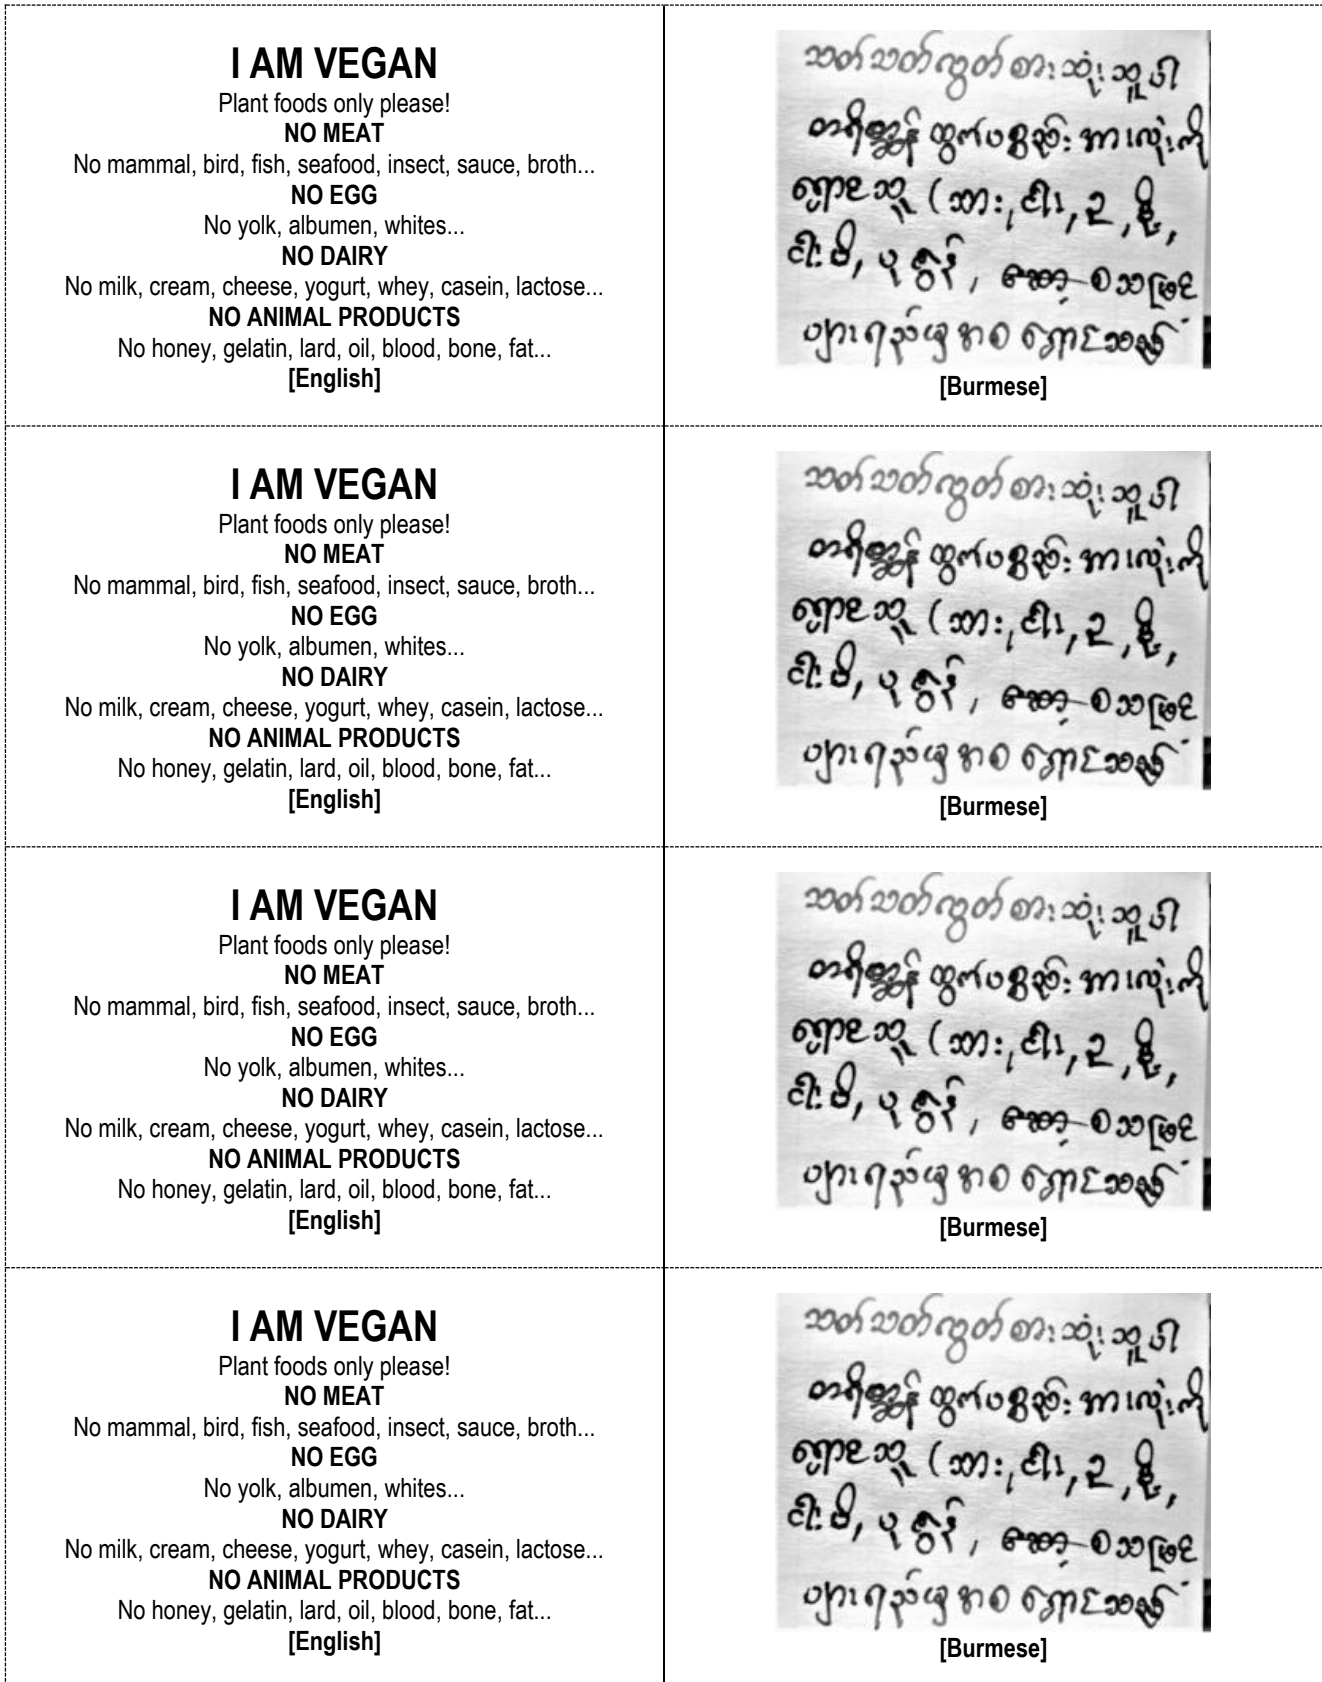 I AM VEGAN
Plant foods only please!
NO MEAT
No mammal, bird, fish, seafood, insect, sauce, broth...
NO EGG
No yolk, albumen, whites...
NO DAIRY
No milk, cream, cheese, yogurt, whey, casein, lactose...
NO ANIMAL PRODUCTS
No honey, gelatin, lard, oil, blood, bone, fat...
[English]
သတ်သတ်လွတ် စားသုံးသူပါ
တရိစ္ဆန် ထွက်ပစ္စည်း အားလုံးကို
ရှောင်သူ (သား, ငါး, ဥ, နို့,
ငါးပိ, ပုဇွန်, စသဖြင့်
ပျားရည်မှ အစ ရှောင်သည်
[Burmese]
I AM VEGAN
Plant foods only please!
NO MEAT
No mammal, bird, fish, seafood, insect, sauce, broth...
NO EGG
No yolk, albumen, whites...
NO DAIRY
No milk, cream, cheese, yogurt, whey, casein, lactose...
NO ANIMAL PRODUCTS
No honey, gelatin, lard, oil, blood, bone, fat...
[English]
သတ်သတ်လွတ် စားသုံးသူပါ
တရိစ္ဆန် ထွက်ပစ္စည်း အားလုံးကို
ရှောင်သူ (သား, ငါး, ဥ, နို့,
ငါးပိ, ပုဇွန်, စသဖြင့်
ပျားရည်မှ အစ ရှောင်သည်
[Burmese]
I AM VEGAN
Plant foods only please!
NO MEAT
No mammal, bird, fish, seafood, insect, sauce, broth...
NO EGG
No yolk, albumen, whites...
NO DAIRY
No milk, cream, cheese, yogurt, whey, casein, lactose...
NO ANIMAL PRODUCTS
No honey, gelatin, lard, oil, blood, bone, fat...
[English]
သတ်သတ်လွတ် စားသုံးသူပါ
တရိစ္ဆန် ထွက်ပစ္စည်း အားလုံးကို
ရှောင်သူ (သား, ငါး, ဥ, နို့,
ငါးပိ, ပုဇွန်, စသဖြင့်
ပျားရည်မှ အစ ရှောင်သည်
[Burmese]
I AM VEGAN
Plant foods only please!
NO MEAT
No mammal, bird, fish, seafood, insect, sauce, broth...
NO EGG
No yolk, albumen, whites...
NO DAIRY
No milk, cream, cheese, yogurt, whey, casein, lactose...
NO ANIMAL PRODUCTS
No honey, gelatin, lard, oil, blood, bone, fat...
[English]
သတ်သတ်လွတ် စားသုံးသူပါ
တရိစ္ဆန် ထွက်ပစ္စည်း အားလုံးကို
ရှောင်သူ (သား, ငါး, ဥ, နို့,
ငါးပိ, ပုဇွန်, စသဖြင့်
ပျားရည်မှ အစ ရှောင်သည်
[Burmese]